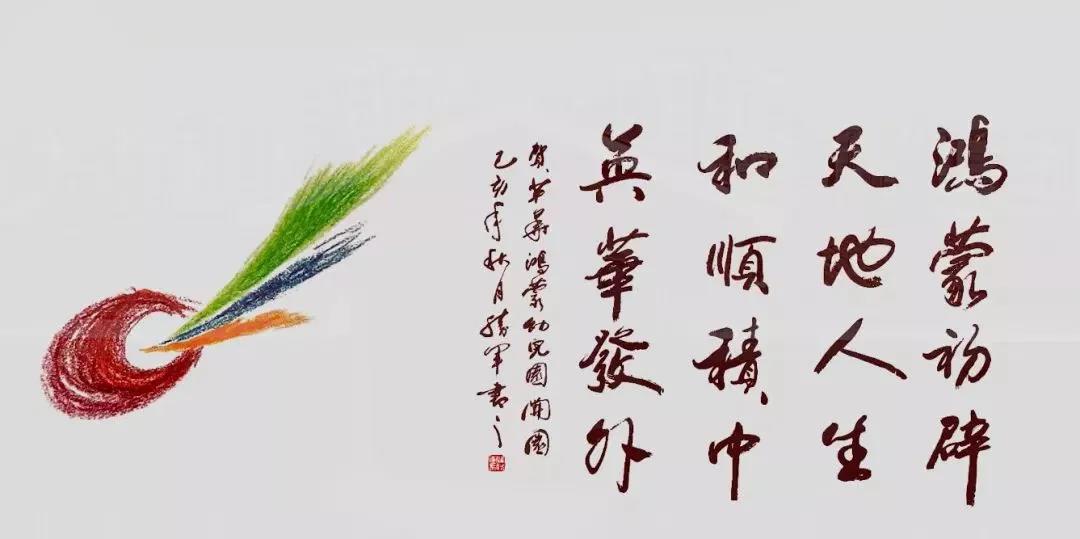 鴻蒙初辟
天地人生
和順積中
英華發外
賀英華鴻蒙幼兒園開園
乙亥年秋月勝軍書之